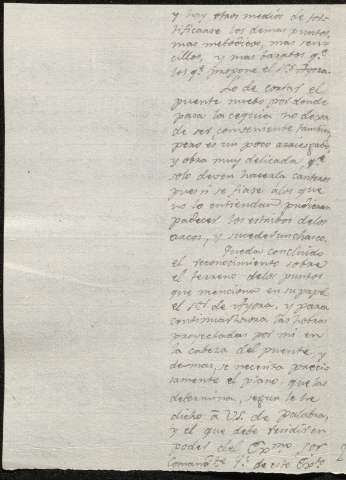 y hay otros medios de for-
tificarse los demas puntos,
mas metodicos, mas senci
cillos, y mas baratos q.e
los q.e propone el S.r Aysra.
Lo de cortar el
puente nuebo por donde
pasa la cequia no dexa
de ser combeniente tambien,
pero es un poco arriesgado,
y obra muy delicada q.e
solo deven hacerla canteros
pues si se fiase a los que
no lo entiendan pudieran
padecer los estribos de los
arcos, y suceder un chasco.
Queda concluido
el reconocimiento sobre
el terreno de los puntos
que menciona en su papel
el S.r de Aysra, y para
continuar ahora las obras
proyectadas por mi en
la cabeza del puente y
demas, se necesita precisa
samente el plano, que las
determina, segun le he
dicho à VS. de palabra,
y el que debe tendrá en
poder del Ex.mo Sor
Comand.te G.l de este Exp.to